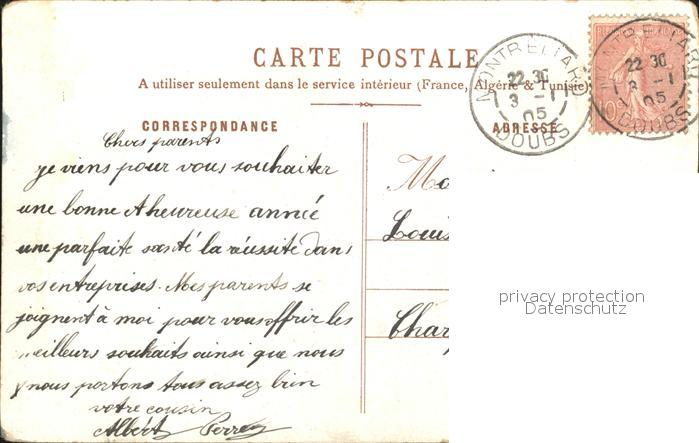 CARTE POSTALE
A utiliser seulement dans le service intérieur (France, Algérie & Tunisie)
MONTBELIARD
22 30
3 -1
05
DOUBS
MONTBELIARD
22 30
3 -1
05
DOUBS
10
CORRESPONDANCE
Chers parents
je viens pour vous souhaiter
une bonne & heureuse année
une parfaite santé la réussite dans
vos entreprises. Mes parents se
joignent à moi pour vous offrir les
meilleurs souhaits ainsi que nous
nous portons tous assez bien
votre cousin
Albert
ADRESSE
Louis
Char
privacy protection
Datenschutz